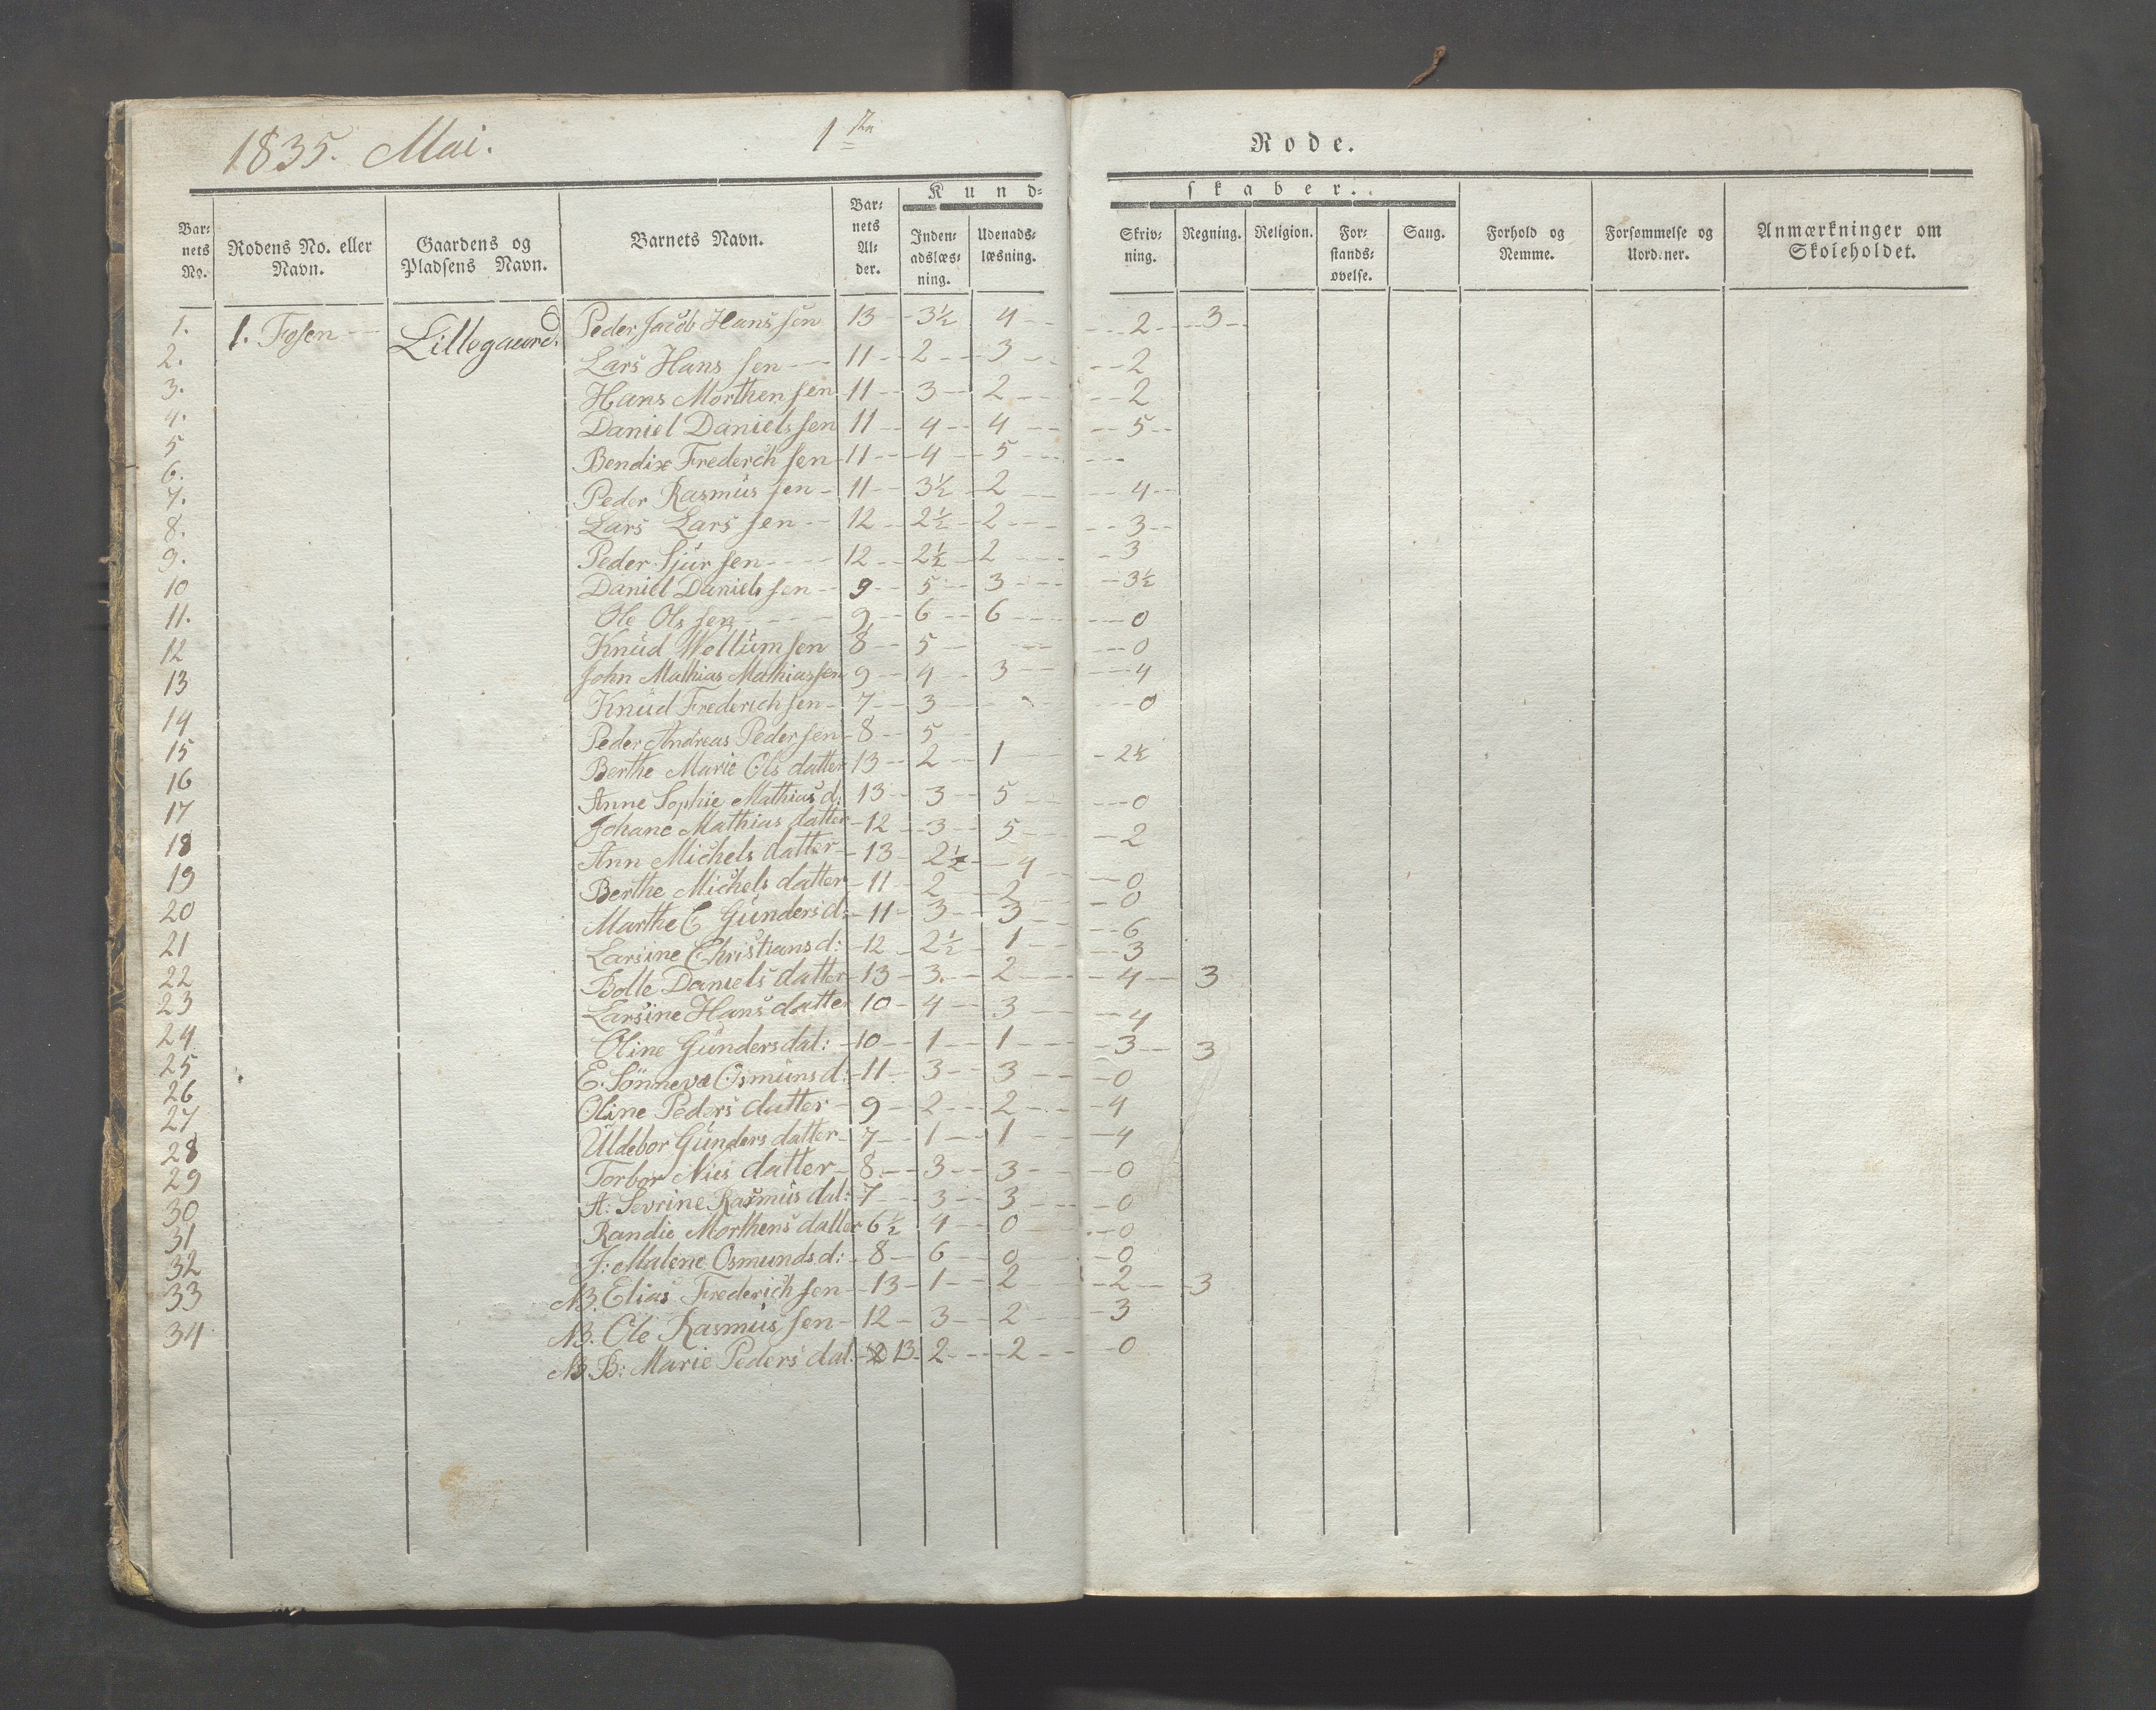 1835. Mai. 1ste Rode.
Kund- skaber.
Bar-nets No. Rodens No. eller Navn. Gaardens og Pladsens Navn. Barnets Navn. Bar-nets Al-der. Inden-adslæs-ning. Udenads-læsning. Skriv-ning. Regning. Religion. For-stands-øvelse. Sang. Forhold og Nemme. Forsømmelse og Uordener. Anmærkninger om Skoleholdet.
1. 1. Fosen Lillegaard Peder Jacob Hanssen 13 3½ 4 2 3
2. Lars Hanssen 11 2 3 2
3. Hans Morthensen 11 3 2 2
4. Daniel Danielssen 11 4 4 5
5 Bendix Frederchsen 11 4 5
6. Peder Rasmussen 11 3½ 2 4
7. Lars Larssen 12 2½ 2 3
8. Peder Sjursen 12 2½ 2 3
9. Daniel Danielssen 9 5 3 3½
10 Ole Olssen 9 6 6 0
11. Knud Wollumsen 8 5 0
12 John Mathias Mathiassen 9 4 3 4
13 Knud Frederichsen 7 3 0
14 Peder Andreas Pedersen 8 5
15 Berthe Marie Ols datter 13 2 1 2½
16 Anne Sophie Mathias d: 13 3 5 0
17 Johane Mathias datter 12 3 5 2
18 Ann Michels datter 13 2½ 4 0
19 Berthe Michels datter 11 2 2 0
20 Marthe C Gunders d: 11 3 3 6
21 Larsine Christians d: 12 2½ 1 3
22 Bolle Daniels datter 13 3. 2 4 3
23 Larsine Hans datter 10 4 3 4
24 Oline Gunders dat: 10 1 1 3 3
25 E. Sönneva Osmuns d: 11 3 3 0
26 Oline Peders datter 9 2 2 4
27 Uldebor Gunders datter 7 1 1 4
28 Torbor Nies datter 8 3 3 0
29 A: Sevrine Rasmus dat: 7 3 3 0
30 Randie Morthens datter 6½ 4 0 0
31 J: Malene Osmunds d: 8 6 0 0
32 NB. Elias Frederichsen 13 1 2 2 3
33 NB. Ole Rasmussen 12 3 2 3
34 NB. B: Marie Peders dat. 13 2 2 0